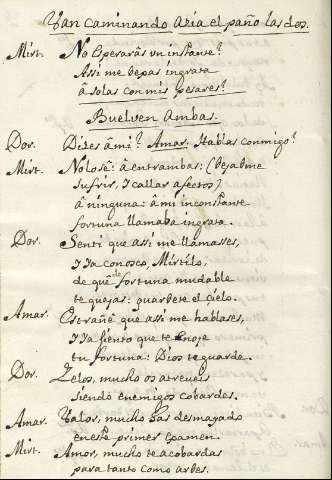 Van caminando azia el paño las dos.
Mirt. No esperarâs un instante?
Assi me dexas ingrata
â solas con mis pesares?
Buelven Ambas.
Dor. Dizes â mi? Amar. Hablas conmigo?
Mirt. No lo sê: â entrambas: (Dexadme
sufrir, y callar afectos)
â ninguna: â mi inconstante
fortuna llamaba ingrata.
Dor. Senti que assi me llamasses,
y ya conosco, Mirtilo,
de quê de fortuna mudable
te quejas: guardete el çielo.
Amar. Estrañê que assi me hablases,
y ya siento que te enoje
tu fortuna: Dios te guarde.
Dor. Zelos, mucho os atreveis
siendo enemigos cobardes.
Amar. Valor, mucho has desmayado
en este primer examen.
Mirt. Amor, mucho te acobardas
para tanto como ardes.